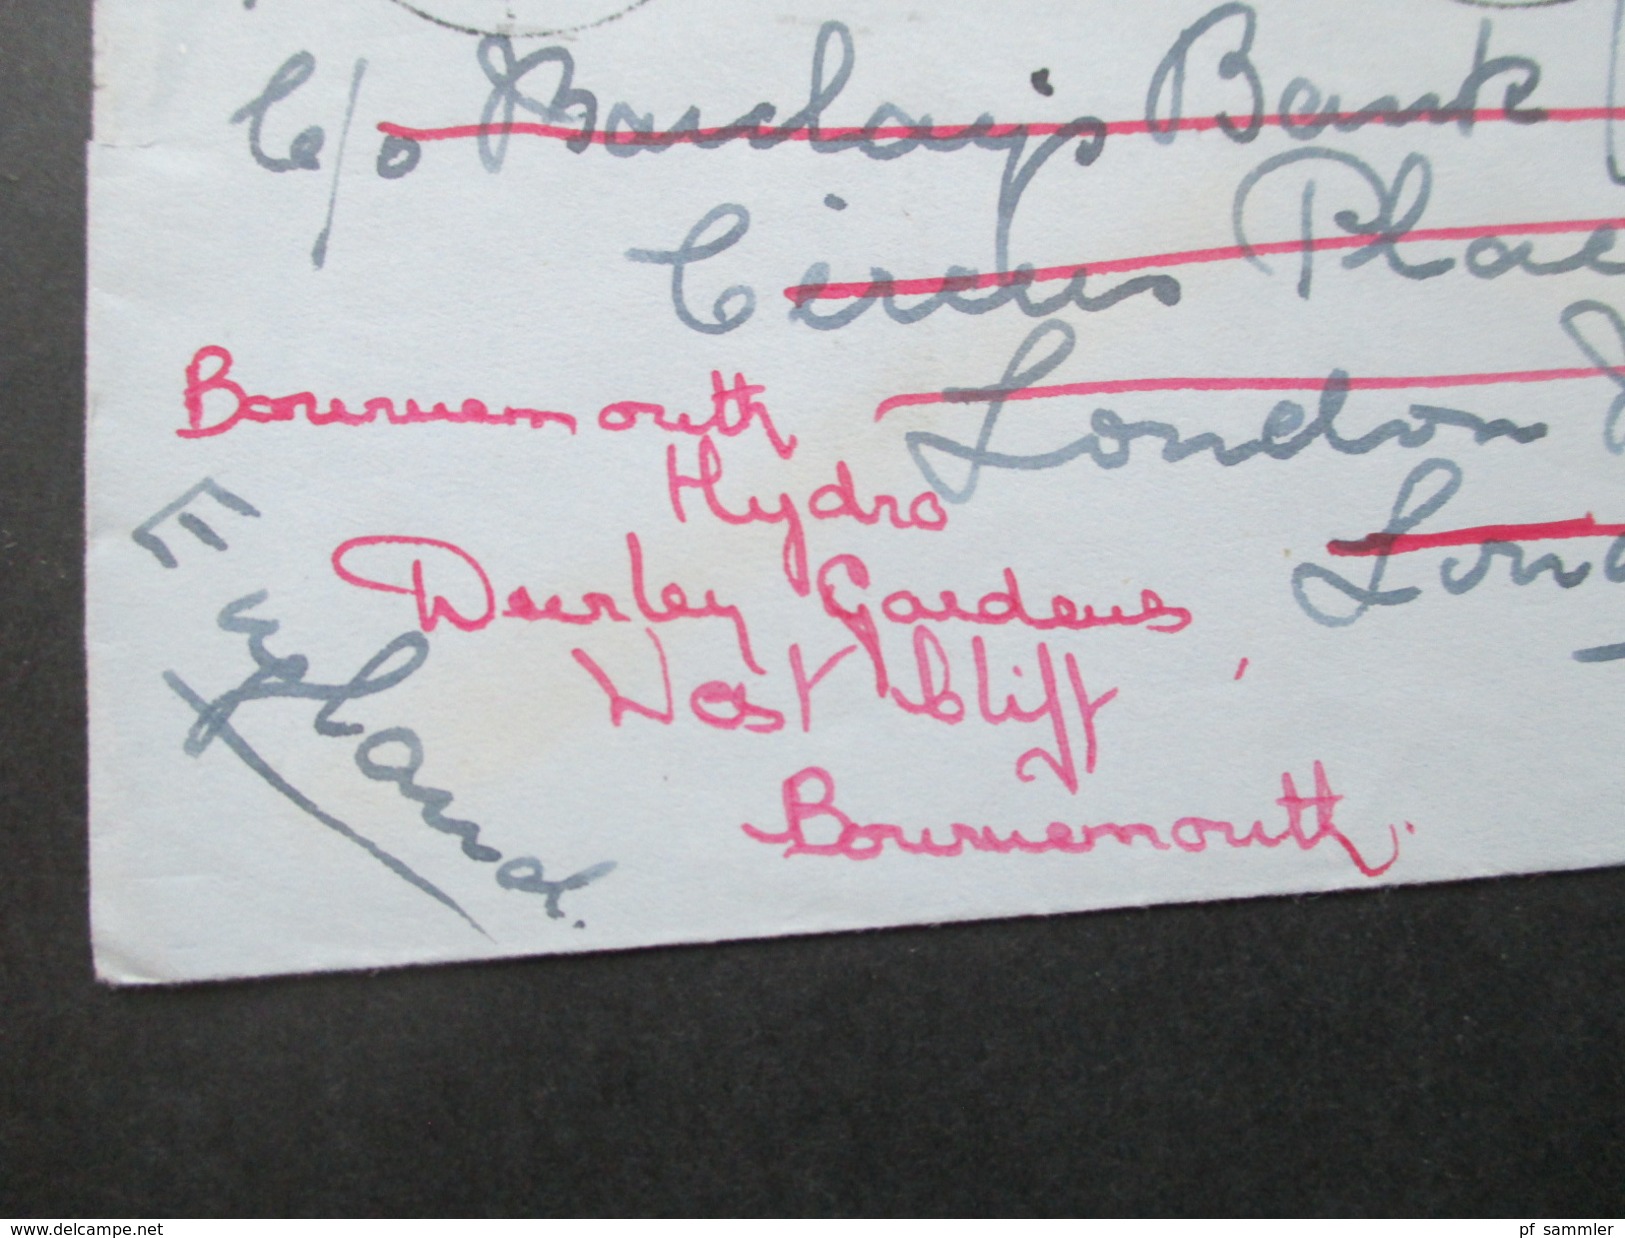 C/o Barclays Bank
Circus Place
London
Lon
Bournemouth
Hydro
Durley Gardens
West Cliff
Bournemouth.
England.
www.delcampe.net
pf_sammler